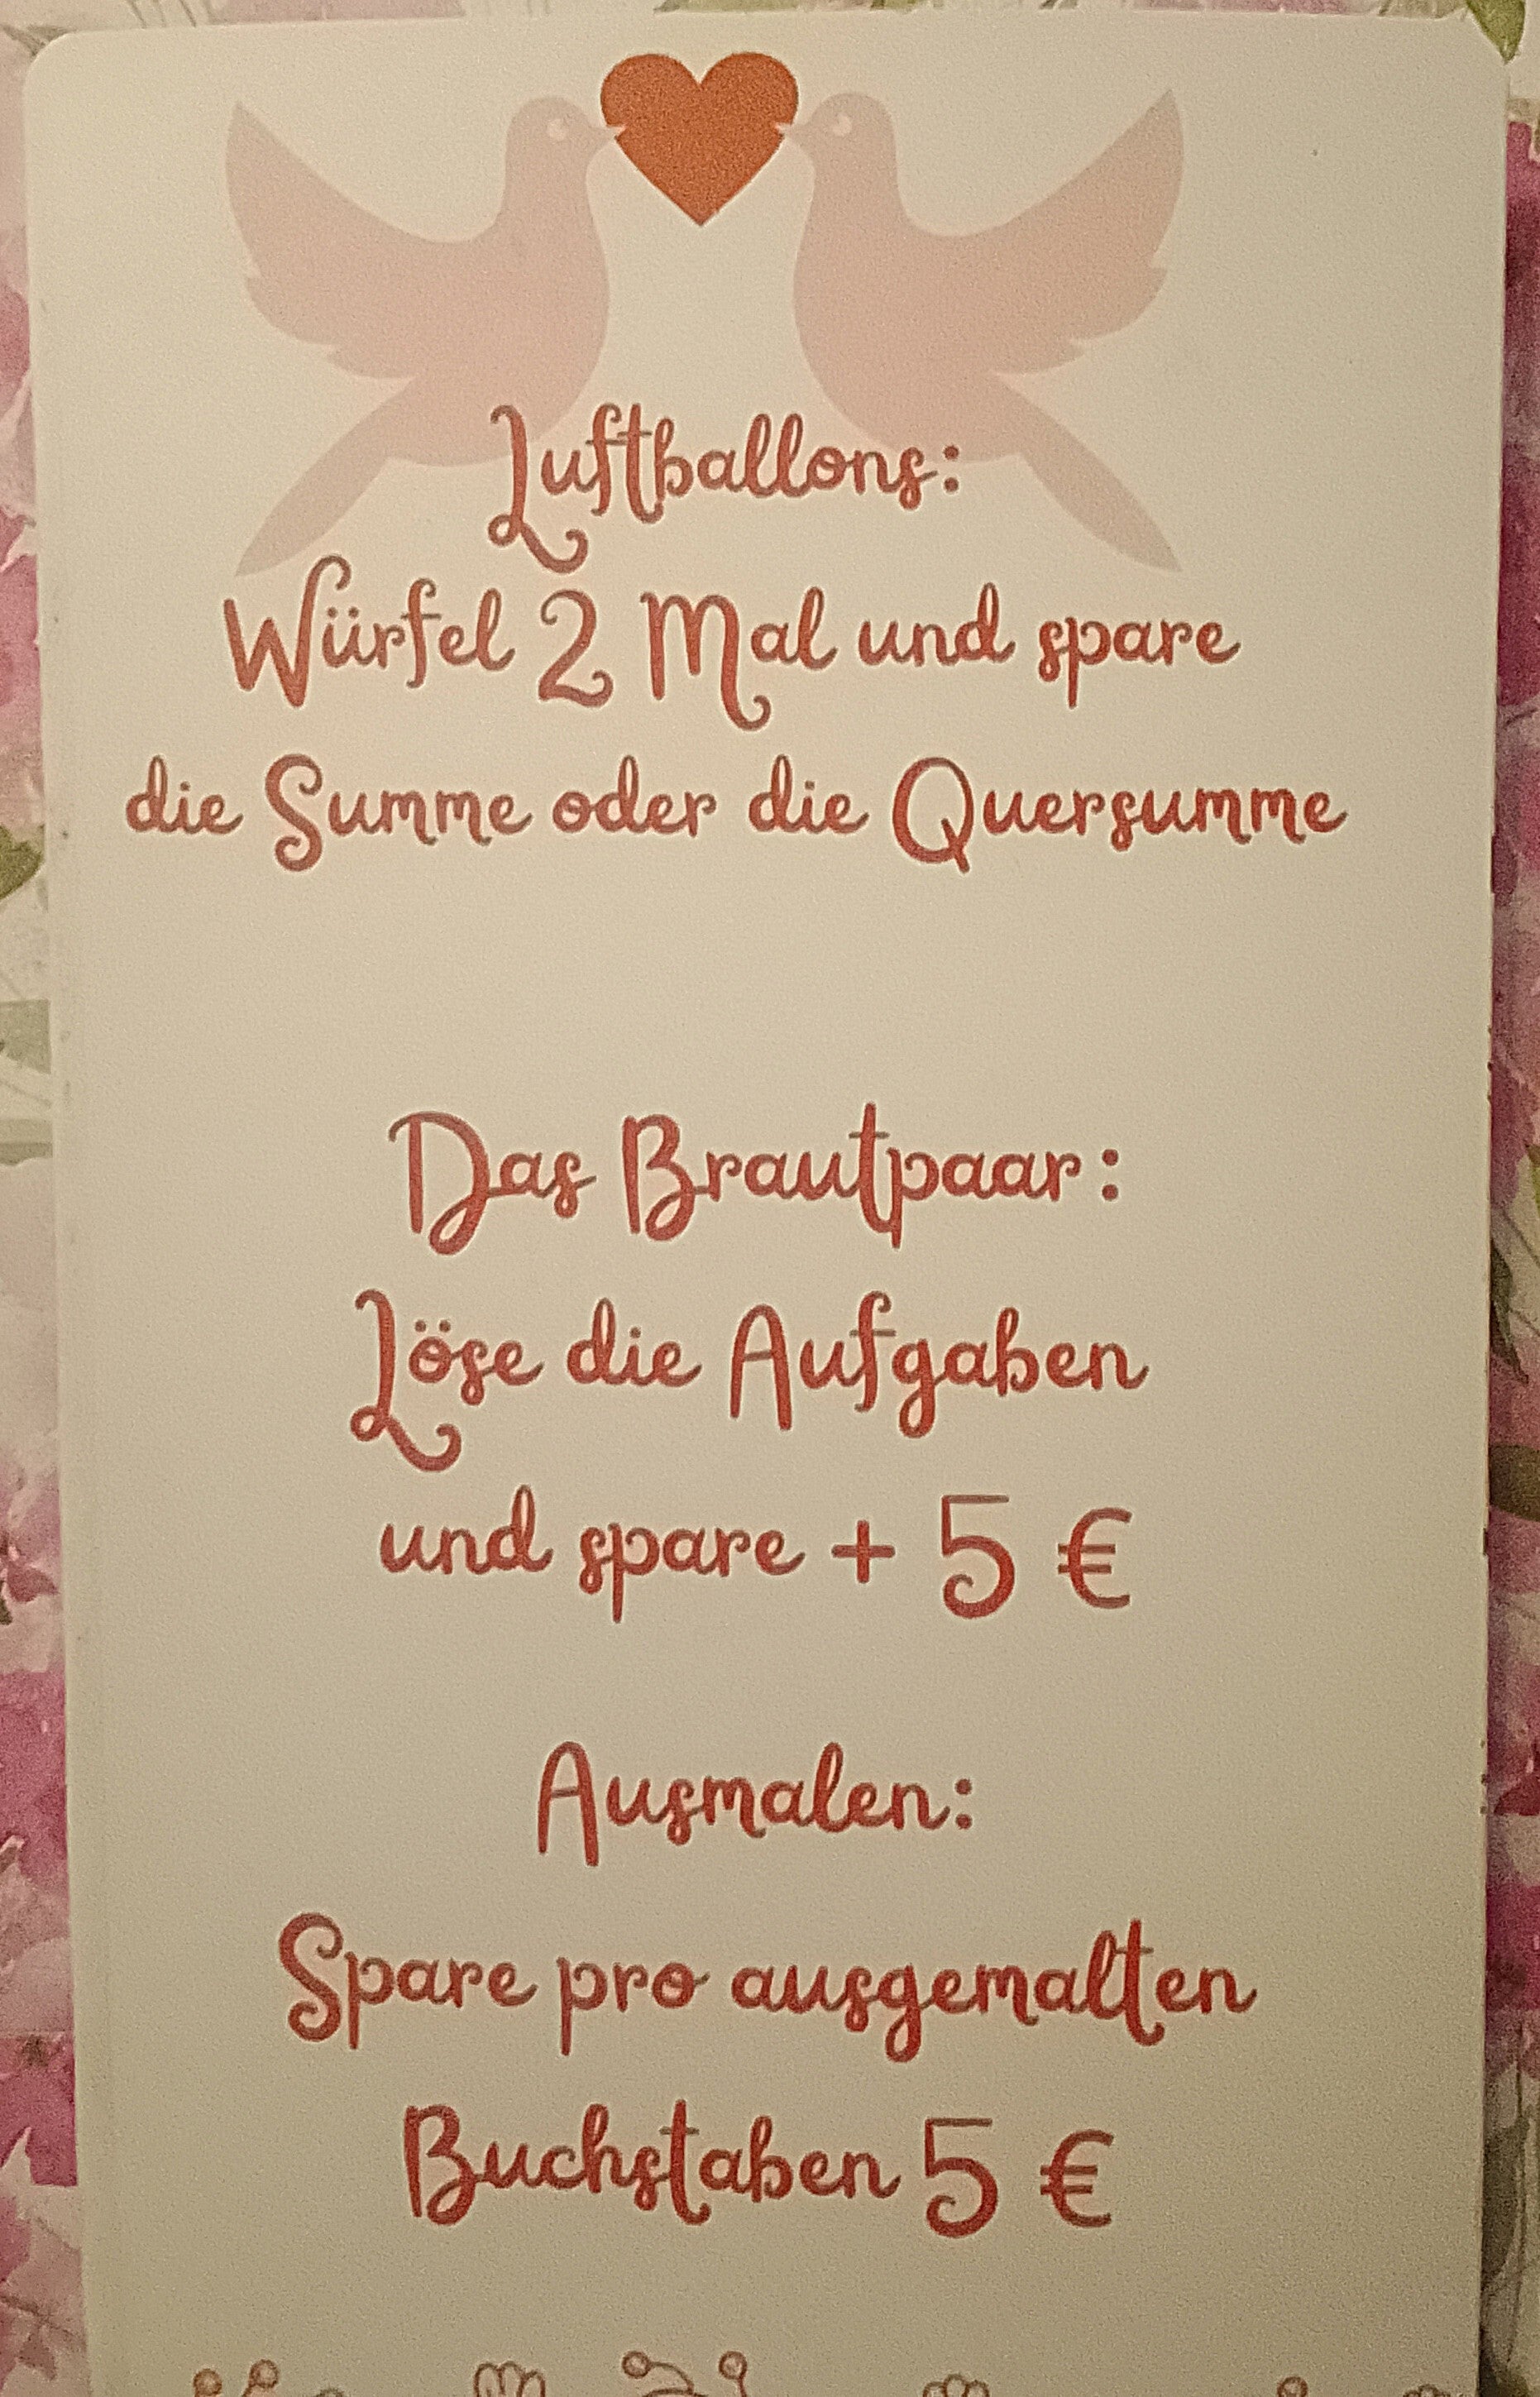 Luftballons:
Würfel 2 Mal und spare
die Summe oder die Quersumme
Das Brautpaar:
Löse die Aufgaben
und spare + 5 €
Ausmalen:
Spare pro ausgemalten
Buchstaben 5 €